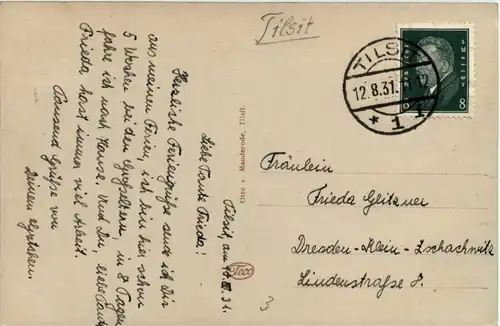 Tilsit
Tilsit, am 10.VIII.31.
Liebe Tante Frieda!
Herzliche Feriengrüße sende ich Dir
aus meinen Ferien, ich bin hier schon
5 Wochen bei den Großeltern, in 8 Tagen
fahre ich nach Hause. Und Du, liebe Tante
Frieda, hast immer viel Arbeit.
Tausend Grüße von
Deinem
Otto v. Mauderode, Tilsit.
Teco
TILSIT
12.8.31.
* 1
8
Fräulein
Frieda Gleitzner
Dresden-Klein-Zschachwitz
Lindenstraße 8.
3